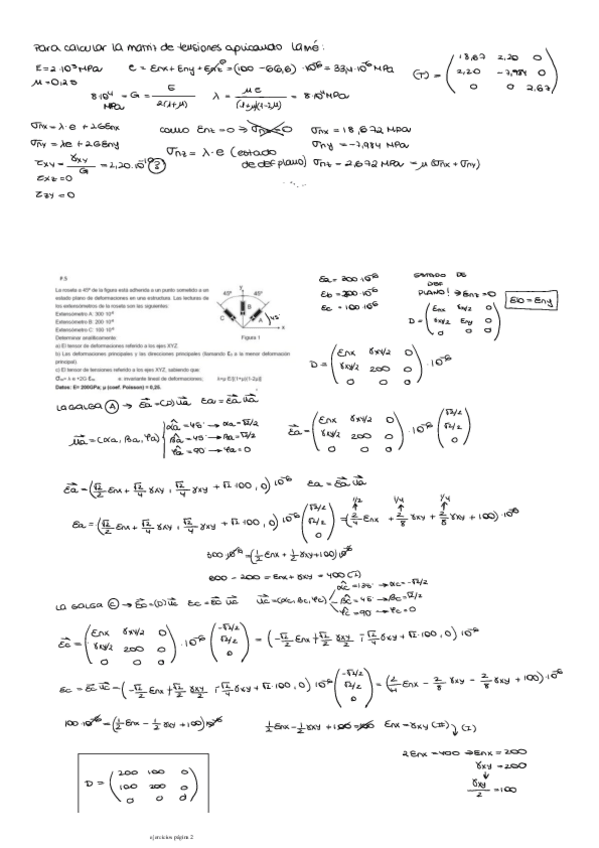 Para calcular la matriz de tensiones aplicando Lamé:
E=2·10⁵ MPa
e = εnx+εny+εnz = (100 - 66,6)·10⁻⁶ = 33,4·10⁻⁶ MPa
(T) = (18,67 2,20 0
2,20 -7,984 0
0 0 2,67)
μ=0,25
8·10⁴ MPa = G = E / 2(1+μ)
λ = μE / (1+μ)(1-2μ) = 8·10⁴ MPa
σnx = λ·e + 2Gεnx
como εnz=0 → σnz=0
σnx = 18,672 MPa
σny = λe + 2Gεny
σnz = λ·e (estado de def plano)
σny = -7,984 MPa
τxy = γxy / G = 2,20·10
σnz = 2,672 MPa = μ(σnx + σny)
τxz=0
τzy=0
La roseta a 45º de la figura está adherida a un punto sometido a un
estado plano de deformaciones en una estructura. Las lecturas de
los extensómetros de la roseta son las siguientes:
Extensómetro A: 300 10⁻⁶
Extensómetro B: 200 10⁻⁶
Extensómetro C: 100 10⁻⁶
Determinar analíticamente:
Figura 1
a) El tensor de deformaciones referido a los ejes XYZ
b) Las deformaciones principales y las direcciones principales (llamando E₃ a la menor deformación
principal).
c) El tensor de tensiones referido a los ejes XYZ, sabiendo que:
e: invariante lineal de deformaciones;
Datos: E= 200GPa; μ (coef. Poisson) = 0,25.
45º 45º
C B A
45
εa = 300·10⁻⁶
εb = 200·10⁻⁶
εc = 100·10⁻⁶
ESTADO DE DEF PLANO! → εnz=0
εb = εny
D = (εnx γxy/2 0
γxy/2 εny 0
0 0 0)
D = (εnx γxy/2 0
γxy/2 200 0
0 0 0)·10⁻⁶
LA GALGA (A) → εa = (D)ua εa = εa ua
ua = (αa, βa, γa)
αa = 45º → αa = √2/2
βa = 45º → βa = √2/2
γa = 90 → γa = 0
εa = (εnx γxy/2 0
γxy/2 200 0
0 0 0)·10⁻⁶ (√2/2
√2/2
0)
εa = (√2/2 εnx + √2/4 γxy, √2/4 γxy + √2·100, 0)10⁻⁶ εa = εa ua
εa = (√2/2 εnx + √2/4 γxy, √2/4 γxy + √2·100, 0)10⁻⁶ (√2/2 √2/2 0) = (2/4 εnx + 2/8 γxy + 2/8 γxy + 100)·10⁻⁶
1/2 1/4 1/4
300·10⁻⁶ = (1/2 εnx + 1/2 γxy + 100)10⁻⁶
600 - 200 = εnx + γxy = 400 (I)
LA GALGA (C) → εc = (D)uc εc = εc uc uc = (αc, βc, γc)
αc = 135º → αc = -√2/2
βc = 45º → βc = √2/2
γc = 90 → γc = 0
εc = (εnx γxy/2 0
γxy/2 200 0
0 0 0)·10⁻⁶ (-√2/2 √2/2 0) = (-√2/2 εnx + √2/2 γxy/2, -√2/4 γxy + √2·100, 0)10⁻⁶
εc = εc uc = (-√2/2 εnx + √2/2 γxy/2, -√2/4 γxy + √2·100, 0)10⁻⁶ (-√2/2 √2/2 0) = (2/4 εnx - 2/8 γxy - 2/8 γxy + 100)·10⁻⁶
100·10⁻⁶ = (1/2 εnx - 1/2 γxy + 100)10⁻⁶
1/2 εnx - 1/2 γxy + 100 = 100 εnx = γxy (II) (I)
2εnx = 400 → εnx = 200
γxy = 200
γxy/2 = 100
D = (200 100 0
100 200 0
0 0 0)
ejercicios página 2